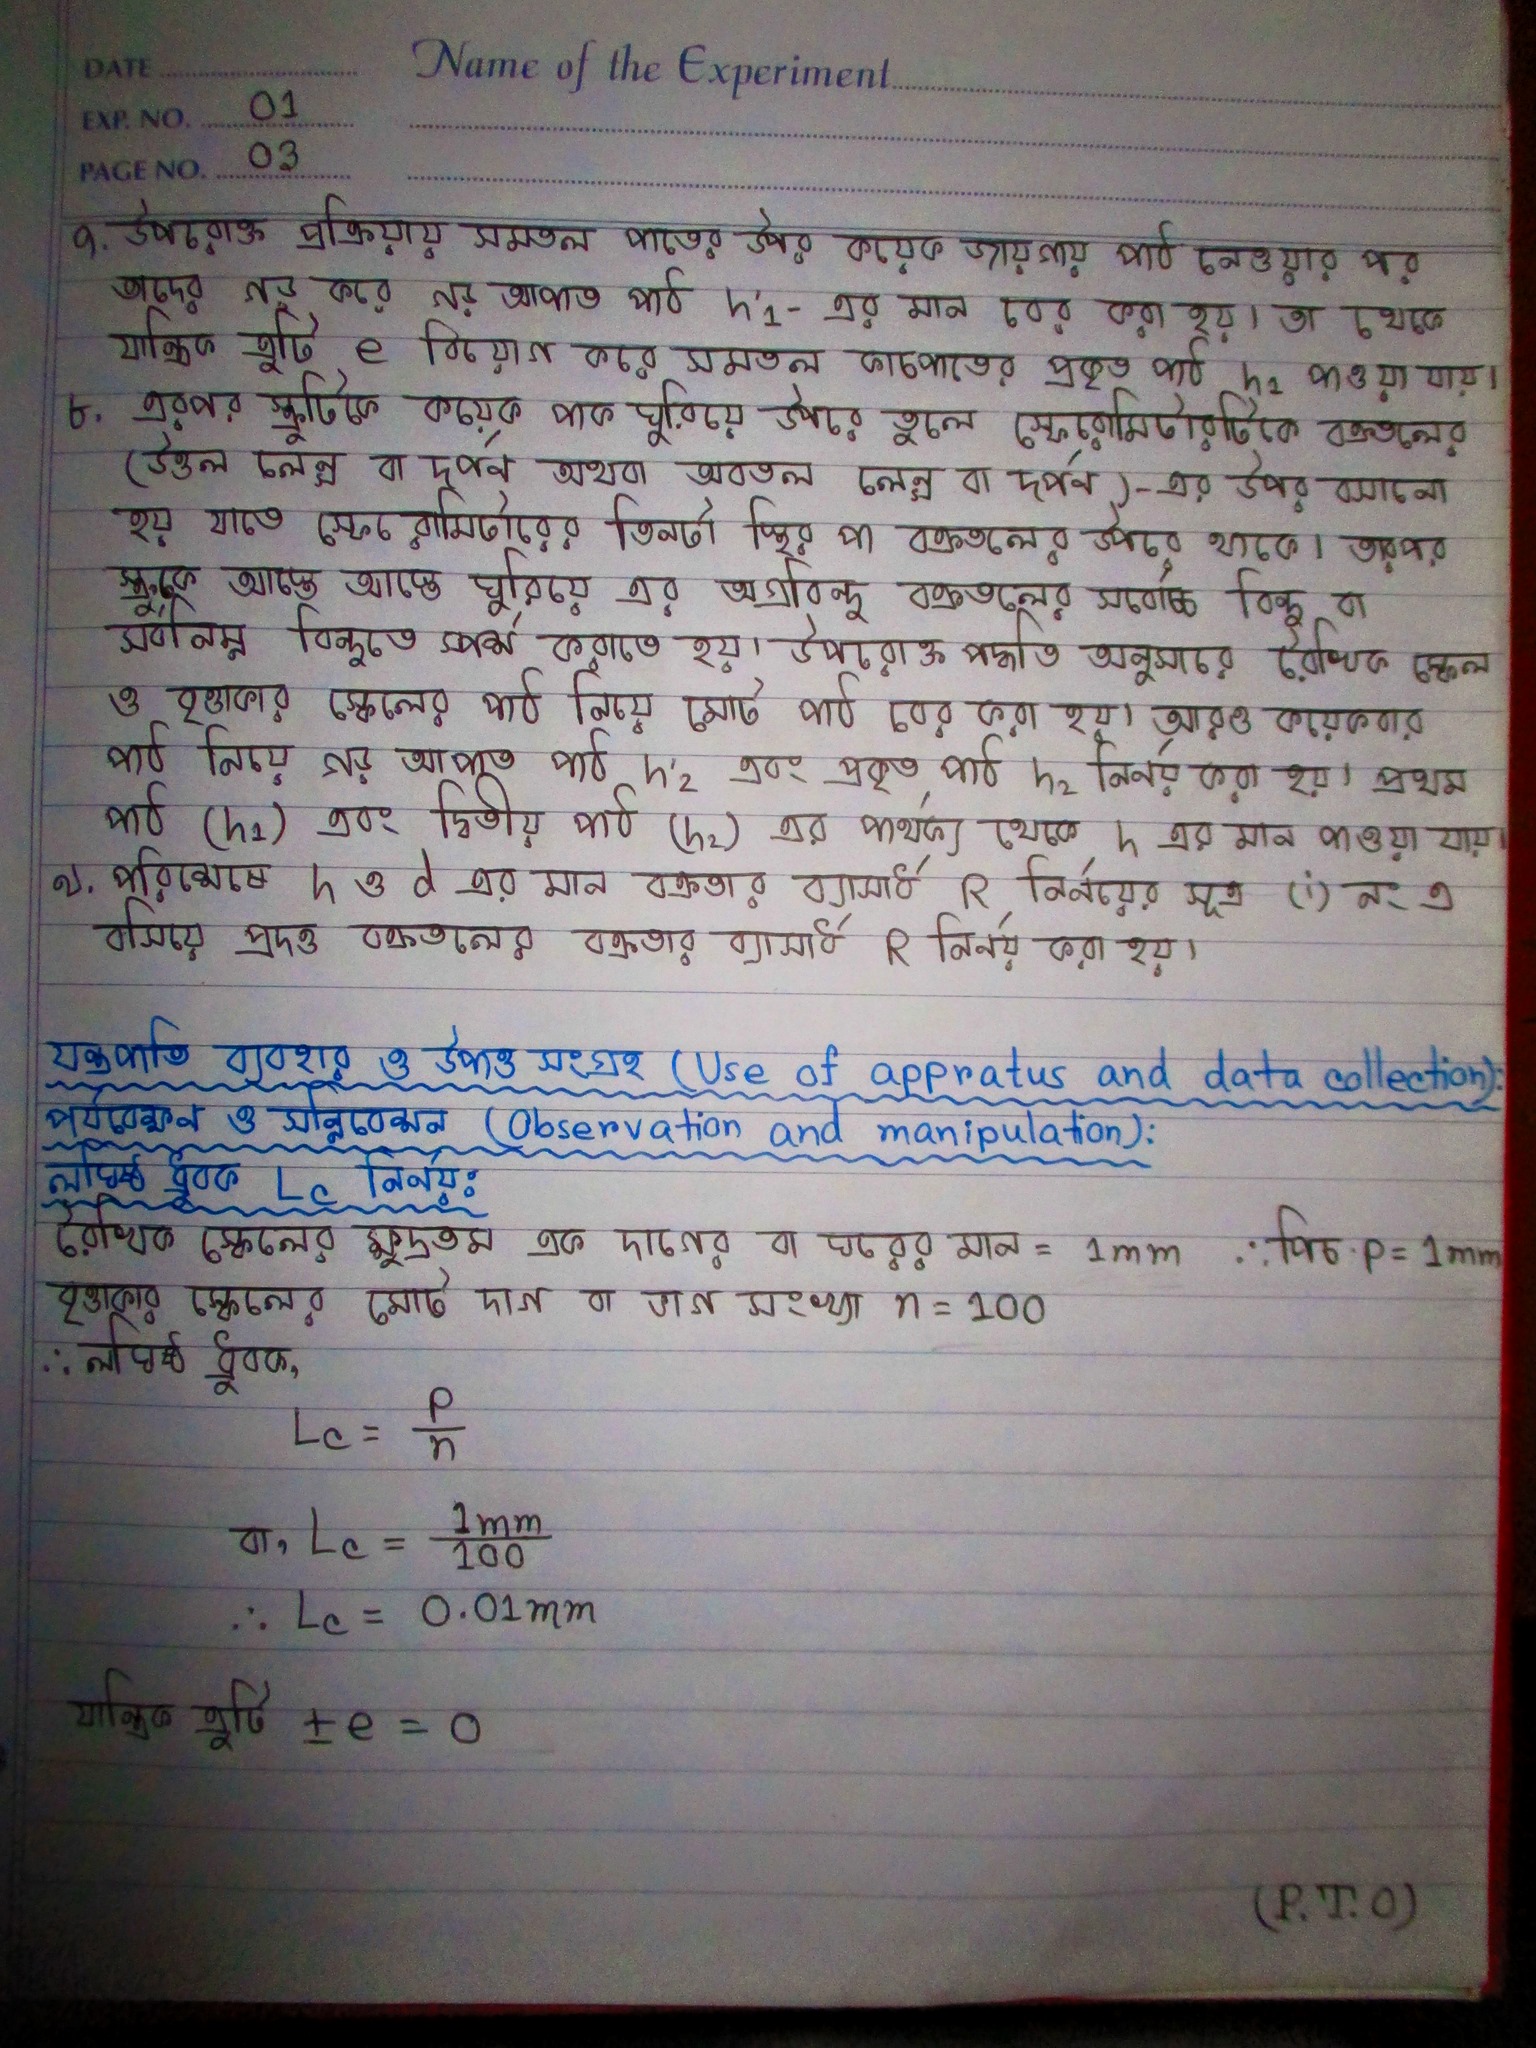 DATE
Name of the Experiment
EXP. NO. 01
PAGE NO. 03
৭. উপরোক্ত প্রক্রিয়ায় সমতল পাতের উপর কয়েক জায়গায় পাঠ নেওয়ার পর
তাদের গড় করে গড় আপাত পাঠ h'1- এর মান বের করা হয়। তা থেকে
যান্ত্রিক ত্রুটি e বিয়োগ করে সমতল কাচপাতের প্রকৃত পাঠ h1 পাওয়া যায়।
৮. এরপর স্ক্রুটিকে কয়েক পাক ঘুরিয়ে উপরে তুলে স্ফেরোমিটারটিকে বক্রতলের
(উত্তল লেন্স বা দর্পন অথবা অবতল লেন্স বা দর্পন)-এর উপর বসানো
হয় যাতে স্ফেরোমিটারের তিনটা স্থির পা বক্রতলের উপরে থাকে। তারপর
স্ক্রুকে আস্তে আস্তে ঘুরিয়ে এর অগ্রবিন্দু বক্রতলের সর্বোচ্চ বিন্দু বা
সর্বনিম্ন বিন্দুতে স্পর্শ করাতে হয়। উপরোক্ত পদ্ধতি অনুসারে রৈখিক স্কেল
ও বৃত্তাকার স্কেলের পাঠ নিয়ে মোট পাঠ বের করা হয়। আরও কয়েকবার
পাঠ নিয়ে গড় আপাত পাঠ h'2 এবং প্রকৃত পাঠ h2 নির্নয় করা হয়। প্রথম
পাঠ (h1) এবং দ্বিতীয় পাঠ (h2) এর পার্থক্য থেকে h এর মান পাওয়া যায়।
৯. পরিশেষে h ও d এর মান বক্রতার ব্যাসার্ধ R নির্নয়ের সূত্র (i) নং এ
বসিয়ে প্রদত্ত বক্রতলের বক্রতার ব্যাসার্ধ R নির্নয় করা হয়।
যন্ত্রপাতি ব্যবহার ও উপাত্ত সংগ্রহ (Use of appratus and data collection):
পর্যবেক্ষন ও সন্নিবেশন (Observation and manipulation):
লঘিষ্ঠ ধ্রুবক Lc নির্নয়:
রৈখিক স্কেলের ক্ষুদ্রতম এক দাগের বা ঘরের মান = 1mm ∴ পিচ P = 1mm
বৃত্তাকার স্কেলের মোট দাগ বা ভাগ সংখ্যা n = 100
∴ লঘিষ্ঠ ধ্রুবক,
Lc = P/n
বা, Lc = 1mm/100
∴ Lc = 0.01mm
যান্ত্রিক ত্রুটি ±e = 0
(P.T.O)